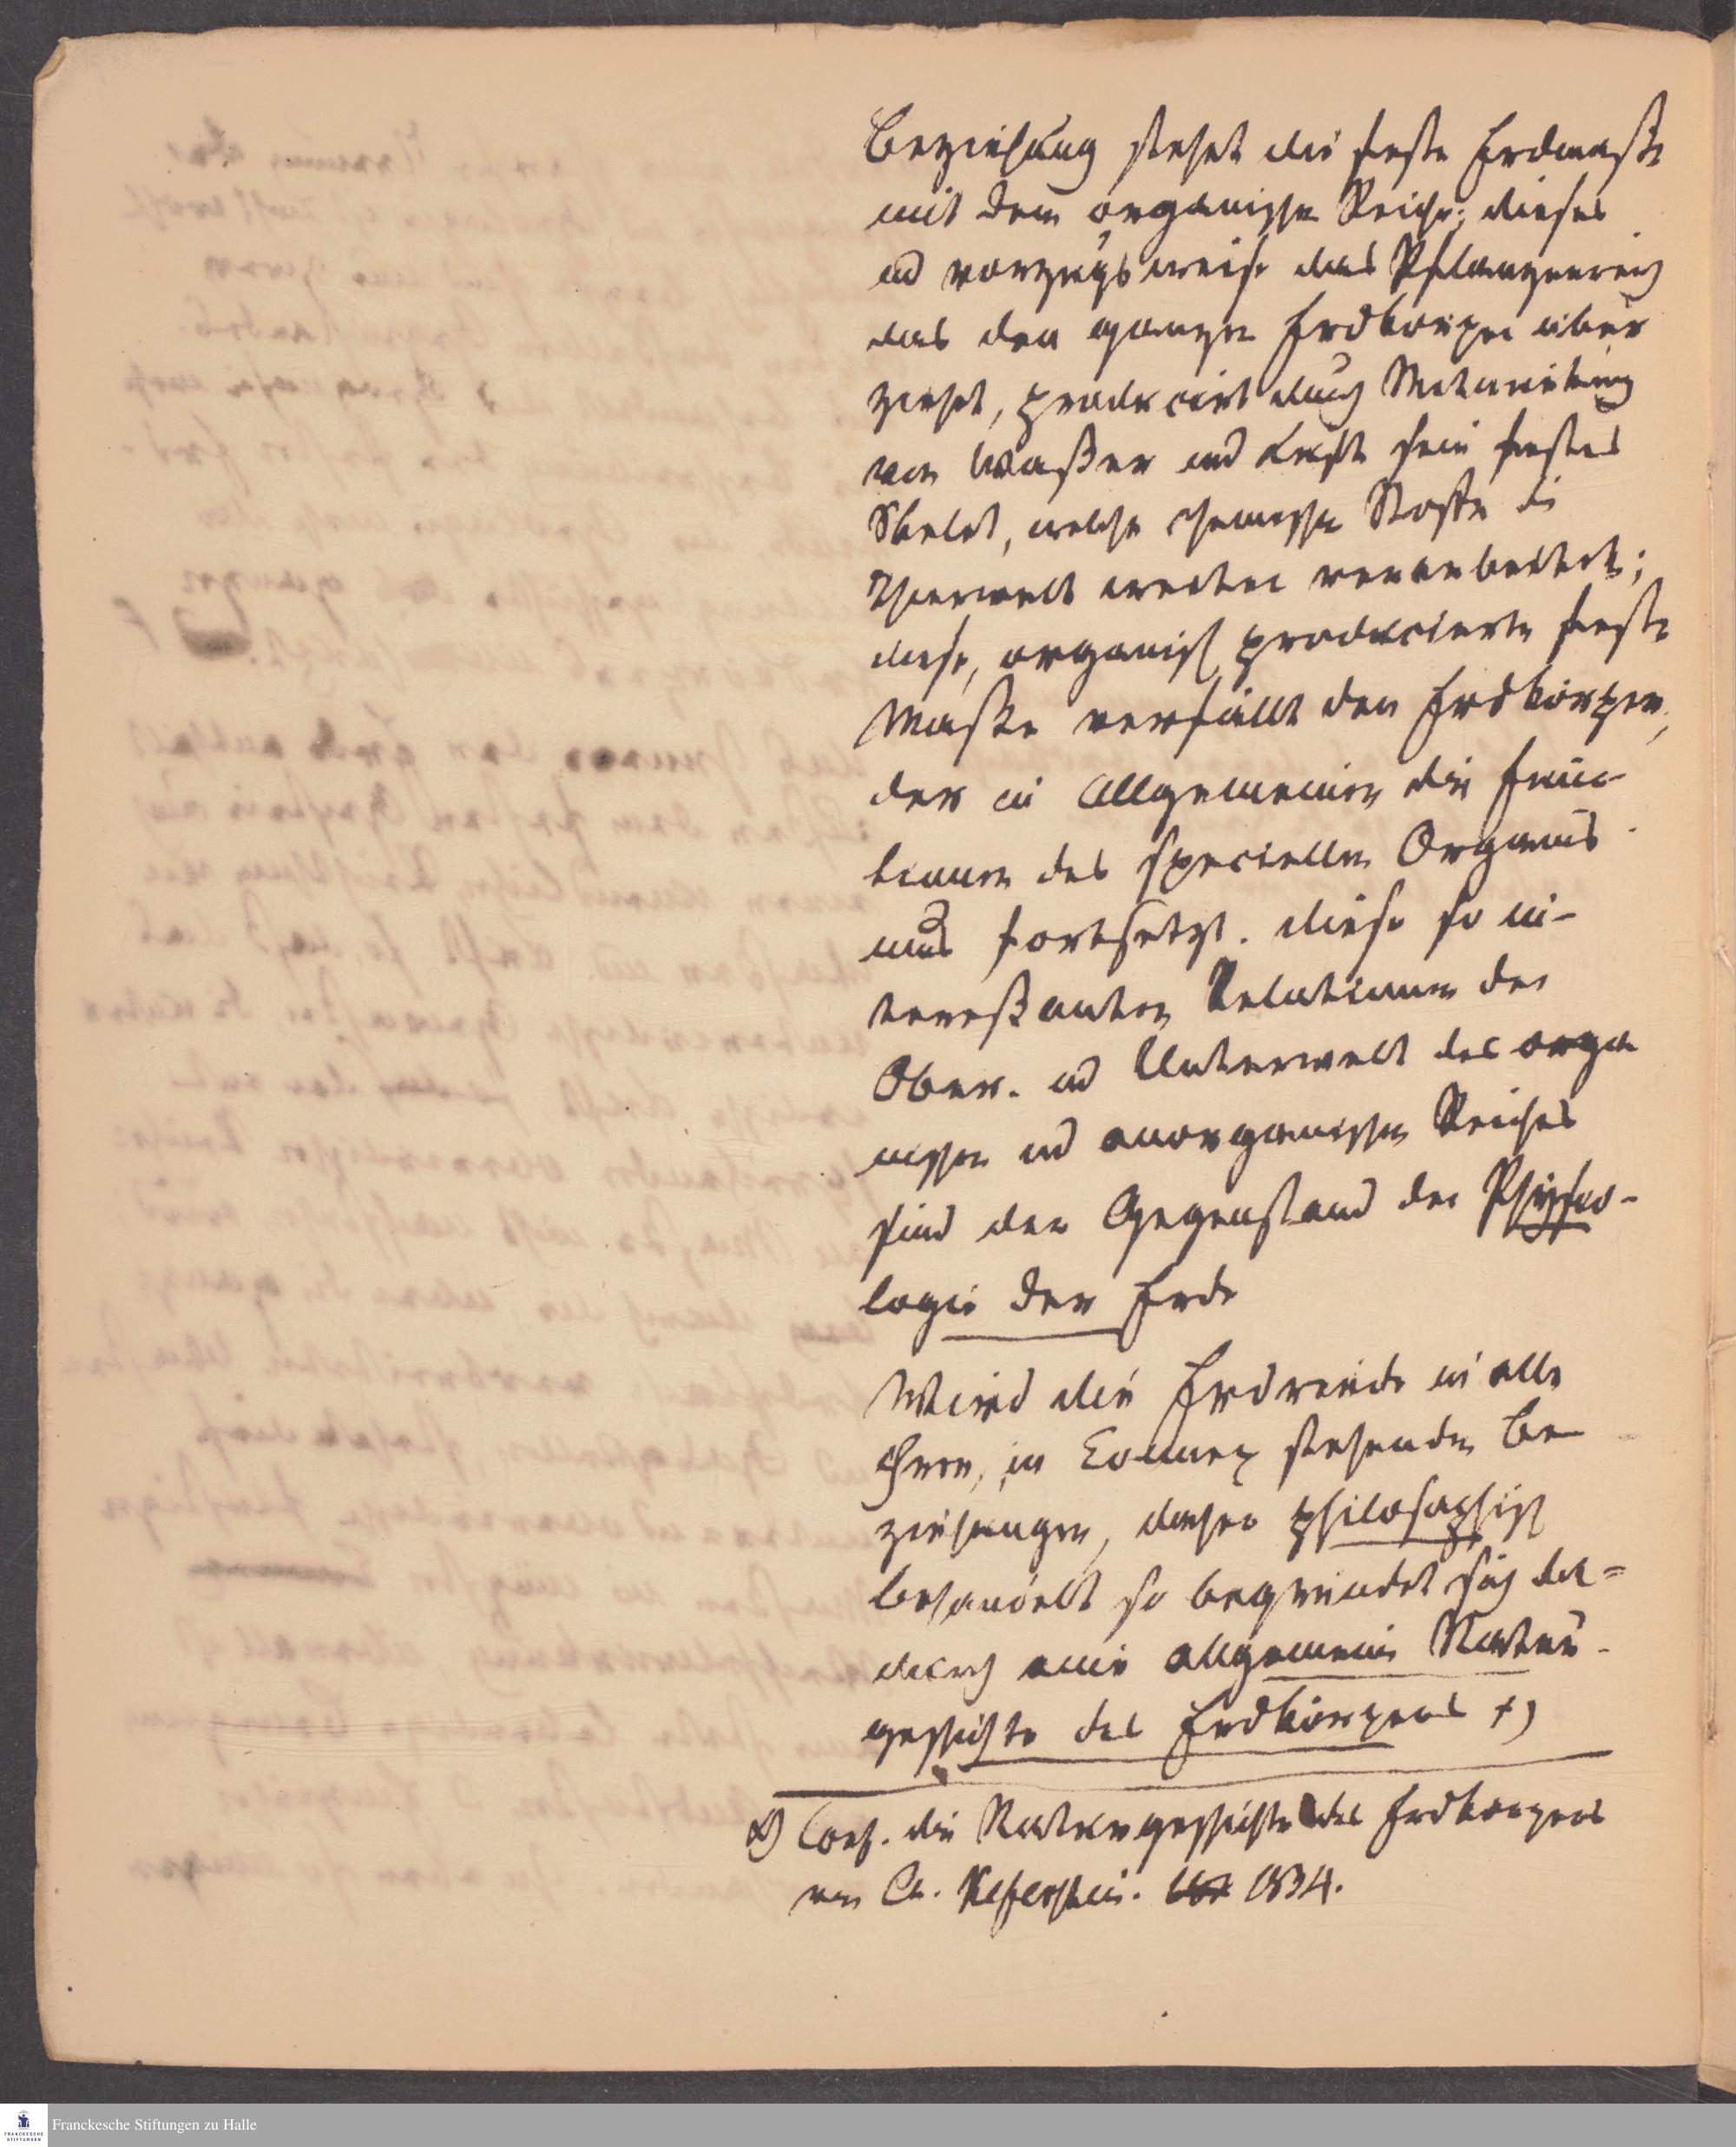 Beziehung stehet die feste Erdmaße
mit dem organischen Reiche; dieses
und vorzugsweise das Pflanzenreich
das den ganzen Erdkörper über
ziehet, producirt durch Mitwirkung
von Waßer und Luft sein festes
Skelet, welche chemische Stoffe die
Thierwelt weiter verarbeitet;
diese, organisch producierte feste
Maße verfällt den Erdkörper,
der im Allgemeinen die Func-
tionen des speciellen Organis
mus fortsetzt. diese so in-
tereßanten Relationen der
Ober- und Unterwelt des orga
nischen und anorganischen Reiches
sind der Gegenstand der Physio-
logie der Erde
Wird die Erdrinde in alle
ihren, in Connex stehenden Be
ziehungen, daher philosophisch
behandelt so begründet sich da=
durch eine allgemeine Natur-
geschichte des Erdkörpers +)
+) Conf. die Naturgeschichte des Erdkörpers
von Ch. Keferstein. 1834.
Franckesche Stiftungen zu Halle
FRANCKESCHE
STIFTUNGEN